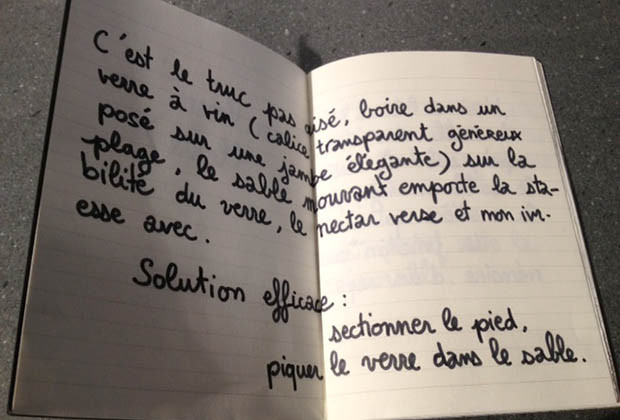 C'est le truc pas aisé, boire dans un
verre à vin (calice transparent généreux
posé sur une jambe élégante) sur la
plage, le sable mouvant emporte la sta-
bilité du verre, le nectar verse et mon ivr-
esse avec.
Solution efficace :
sectionner le pied,
piquer le verre dans le sable.